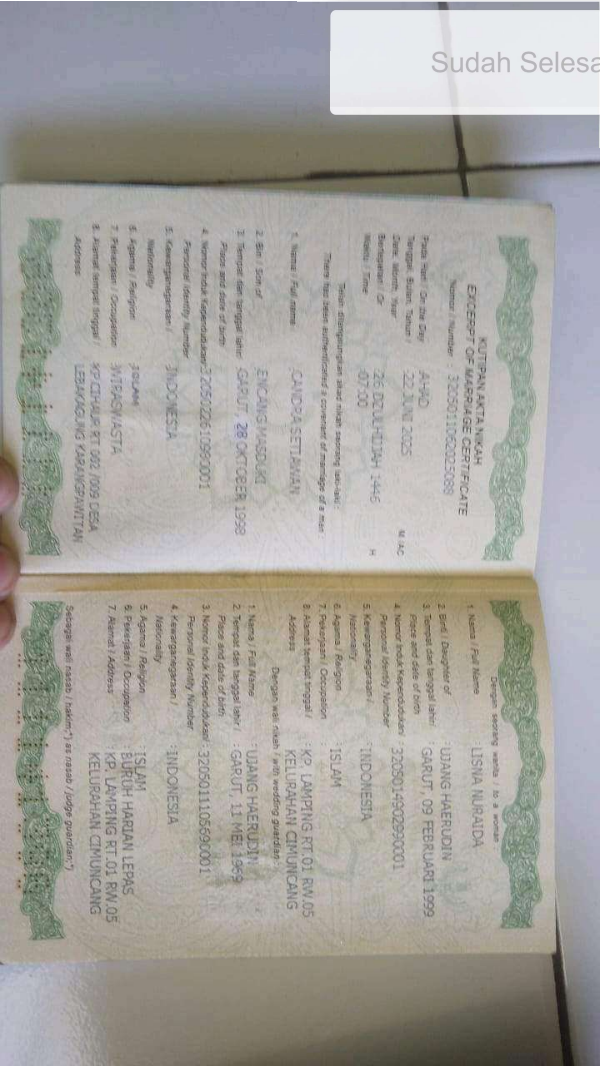 Sudah Selesa
KUTIPAN AKTA NIKAH
EXCERPT OF MARRIAGE CERTIFICATE
Nomor / Number : 3205011062025088
Pada Hari / On the Day : AHAD
Tanggal, Bulan, Tahun / : 22 JUNI 2025 M / AC
Date, Month, Year
Bertepatan / Or : 26 DZULHIJJAH 1446 H
Waktu / Time : 07:00
Telah dilangsungkan akad nikah seorang laki-laki :
There has been authenticated a covenant of marriage of a man
1. Nama / Full name : CANDRA SETIAWAN
2. Bin / Son of : ENCANG MASDUKI
3. Tempat dan tanggal lahir : GARUT, 28 OKTOBER 1998
Place and date of birth
4. Nomor Induk Kependudukan :
Personal Identity Number
5. Kewarganegaraan / : INDONESIA
Nationality
6. Agama / Religion : ISLAM
7. Pekerjaan / Occupation : WIRASWASTA
8. Alamat tempat tinggal / : KP.CIHAUR RT 002 /009 DESA
Address LEBAKAGUNG KARANGPAWITAN
Dengan seorang wanita / to a woman
1. Nama / Full Name : LISNA NURAIDA
2. Binti / Daughter of : UJANG HAERUDIN
3. Tempat dan tanggal lahir / : GARUT, 09 FEBRUARI 1999
Place and date of birth
4. Nomor Induk Kependudukan :
Personal Identity Number
5. Kewarganegaraan / : INDONESIA
Nationality
6. Agama / Religion : ISLAM
7. Pekerjaan / Occupation
8. Alamat tempat tinggal / : KP. LAMPING RT.01 RW.05
Address KELURAHAN CIMUNCANG
Dengan wali nikah / with wedding guardian :
1. Nama / Full Name : UJANG HAERUDIN
2. Tempat dan tanggal lahir / : GARUT, 11 MEI 1969
Place and date of birth
3. Nomor Induk Kependudukan :
Personal Identity Number
4. Kewarganegaraan / : INDONESIA
Nationality
5. Agama / Religion : ISLAM
6. Pekerjaan / Occupation : BURUH HARIAN LEPAS
7. Alamat / Address : KP. LAMPING RT.01 RW.05
KELURAHAN CIMUNCANG
Sebagai wali nasab / hakim:*) as nasab / judge guardian:*)